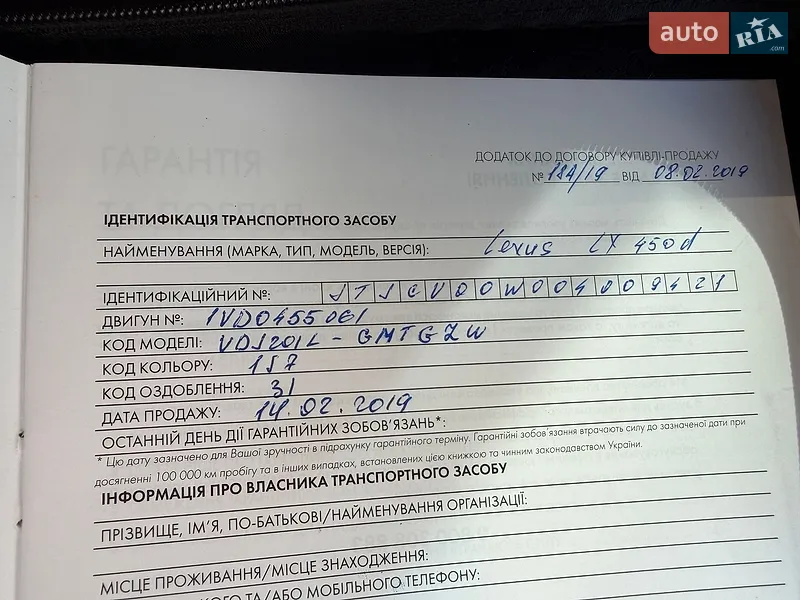 auto RIA .com
ГАРАНТІЯ
ДОДАТОК ДО ДОГОВОРУ КУПІВЛІ-ПРОДАЖУ
№ 184/19 ВІД 08.02.2019
ІДЕНТИФІКАЦІЯ ТРАНСПОРТНОГО ЗАСОБУ
НАЙМЕНУВАННЯ (МАРКА, ТИП, МОДЕЛЬ, ВЕРСІЯ): Lexus LX 450d
ІДЕНТИФІКАЦІЙНИЙ №: JTJCV00W004009421
ДВИГУН №: 1VD0455061
КОД МОДЕЛІ: VDJ201L-GMTGZW
КОД КОЛЬОРУ: 1J7
КОД ОЗДОБЛЕННЯ: 31
ДАТА ПРОДАЖУ: 14.02.2019
ОСТАННІЙ ДЕНЬ ДІЇ ГАРАНТІЙНИХ ЗОБОВ'ЯЗАНЬ*:
* Цю дату зазначено для Вашої зручності в підрахунку гарантійного терміну. Гарантійні зобов'язання втрачають силу до зазначеної дати при
досягненні 100 000 км пробігу та в інших випадках, встановлених цією книжкою та чинним законодавством України.
ІНФОРМАЦІЯ ПРО ВЛАСНИКА ТРАНСПОРТНОГО ЗАСОБУ
ПРІЗВИЩЕ, ІМ'Я, ПО-БАТЬКОВІ/НАЙМЕНУВАННЯ ОРГАНІЗАЦІЇ:
МІСЦЕ ПРОЖИВАННЯ/МІСЦЕ ЗНАХОДЖЕННЯ:
ТА/АБО МОБІЛЬНОГО ТЕЛЕФОНУ: